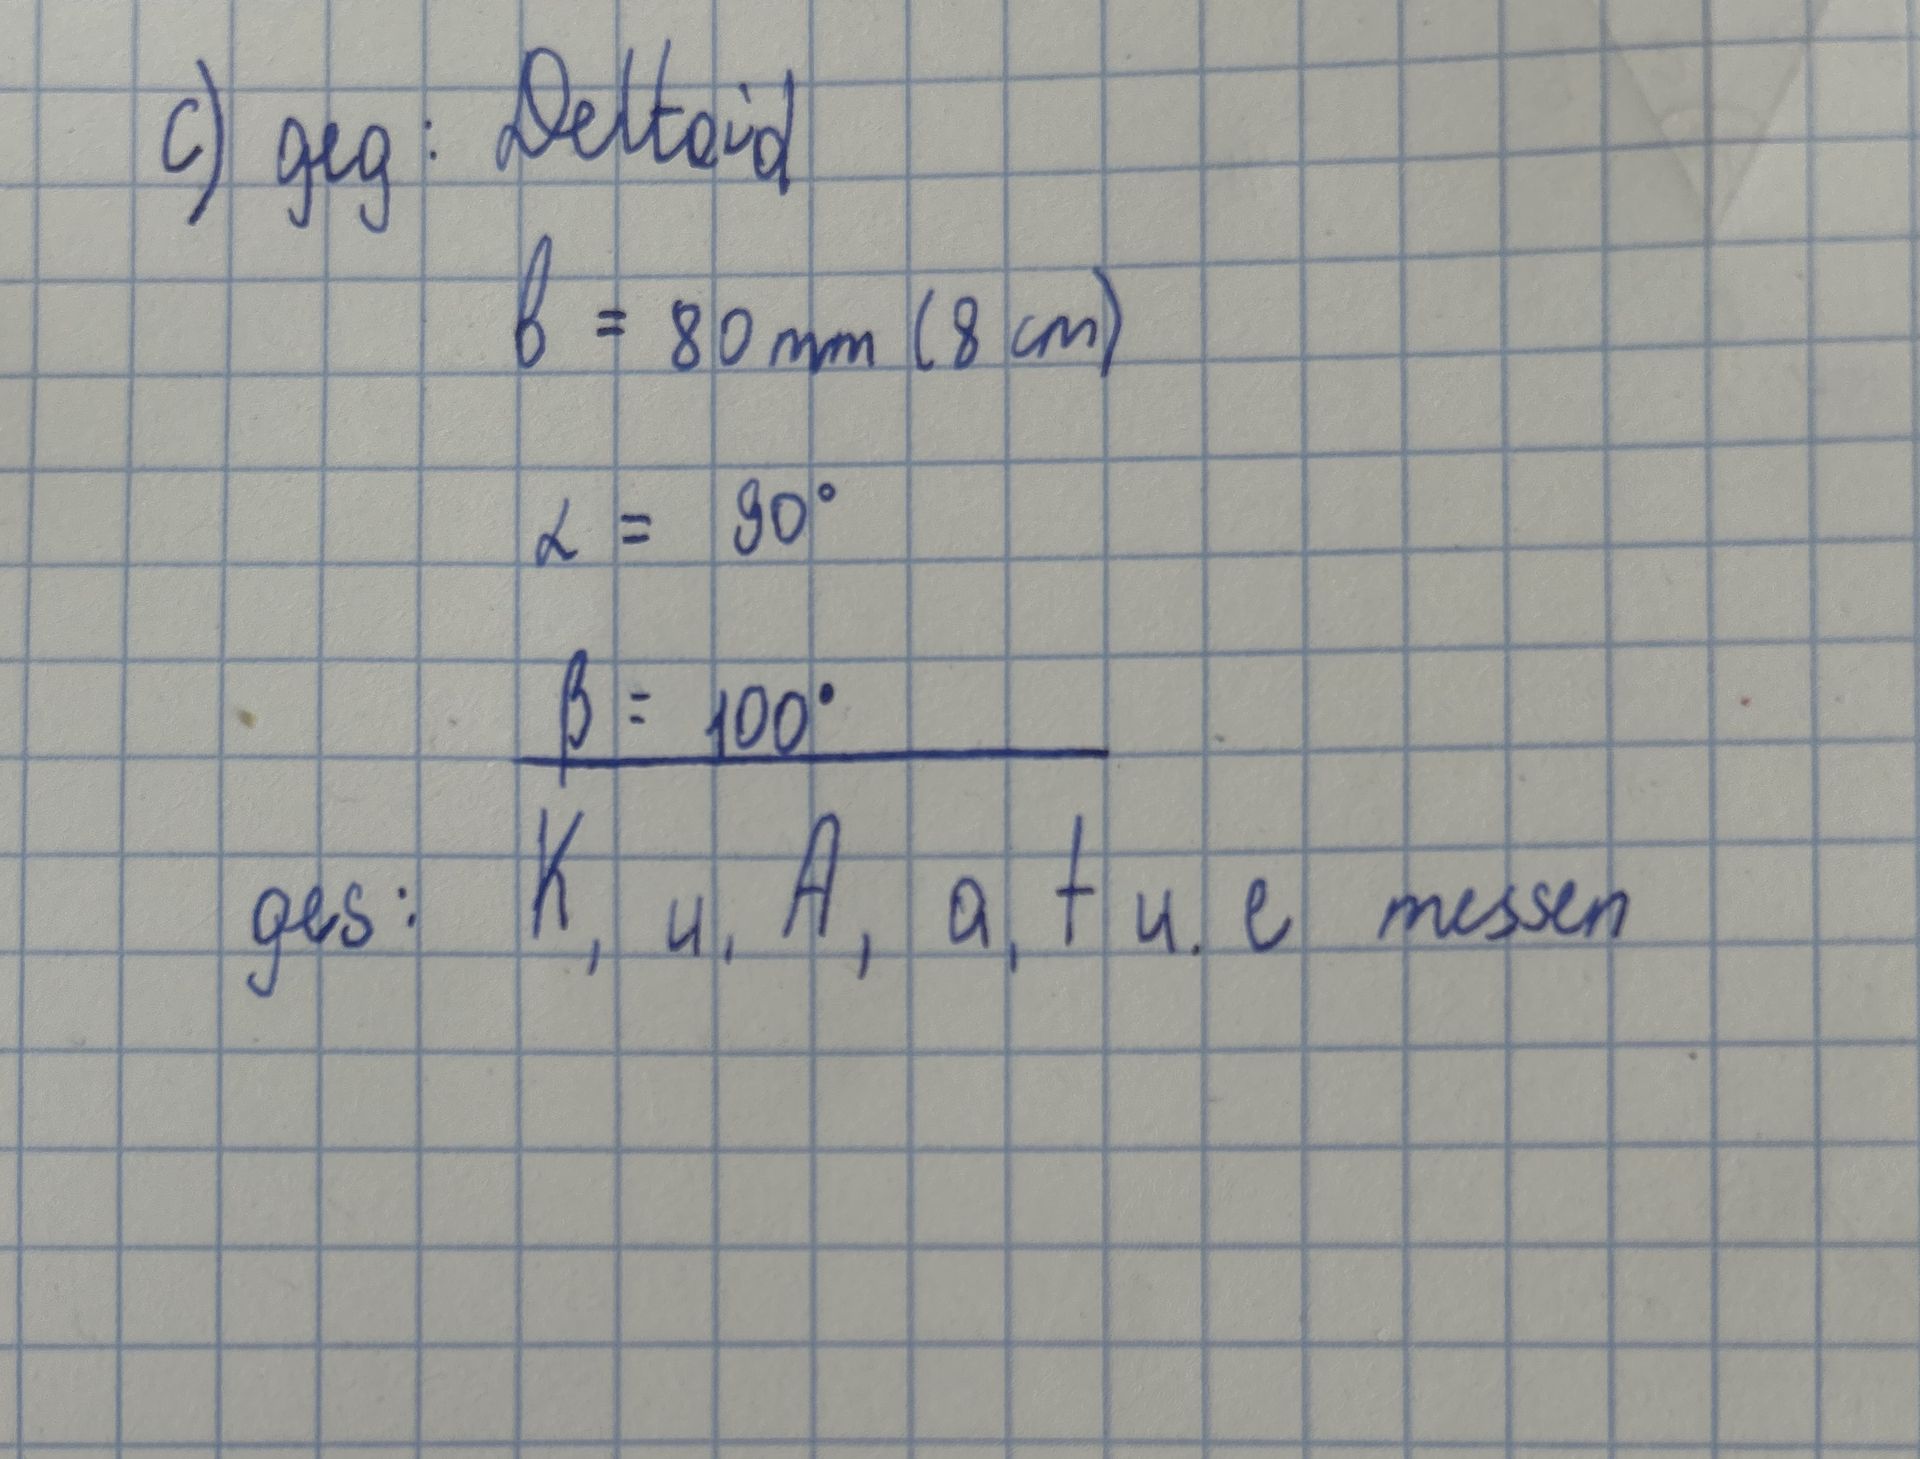 c) geg: Deltoid
b = 80 mm (8 cm)
α = 90°
β = 100°
ges: K, u, A, a, f u. e messen